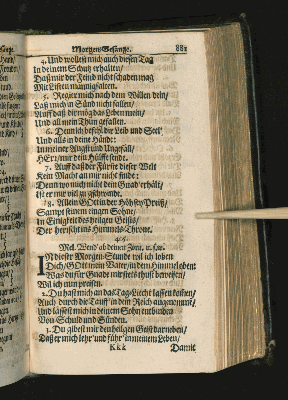 Morgen-Gesänge. 881
4. Und wollest mich auch diesen Tag
In deinem Schutz erhalten/
Daß mir der Feind nicht schaden mag
Mit Listen mannigfalten.
5. Regier mich nach dem Willen dein/
Laß mich in Sünd nicht fallen/
Auff daß dir mög das Leben mein/
Und all mein Thun gefallen.
6. Denn ich befehl dir Leib und Seel/
Und alls in deine Händ:
In meiner Angst und Ungefäll/
HErr/ mir dein Hülffe send.
7. Auff daß der Fürste dieser Welt
Kein Macht an mir nicht finde:
Denn wo mich nicht dein Gnad erhält/
Ist er mir viel zu geschwinde.
8. Allein Gott in der Höh sey Preiß/
Sampt seinem eingen Sohne/
In Einigkeit des heilgen Geists/
Der herrscht ins Himmels-Throne.
405.
Mel. Wend' ab deinen Zorn, u.s.w.
IN dieser Morgen-Stund wil ich loben
Dich/ Gott mein Vater/ in dem Himmel oben:
Was du für Gnade mir stets thust beweisen/
Wil ich nun preisen.
2. Du hast mich an das Tag-Liecht lassen kommen/
Auch durch die Tauff in dein Reich auffgenommen/
Und lässest mich in deinem Sohn entbinden
Von Schuld und Sünden.
3. Du gibest mir den heilgen Geist darneben/
Daß er mich lehr und führ in meinem Leben/
Kkk Damit